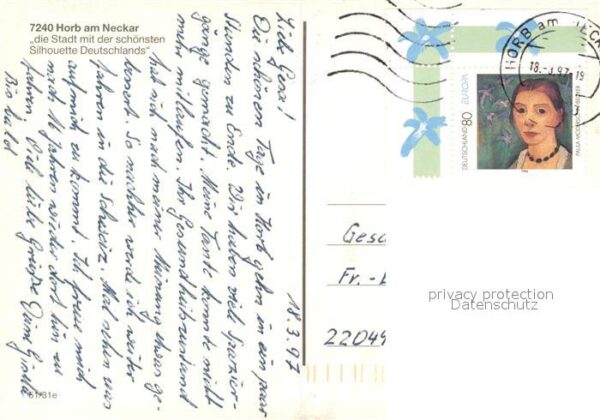 7240 Horb am Neckar
„die Stadt mit der schönsten
Silhouette Deutschlands"
18.3.97
Liebe Gesa!
Die schönen Tage in Horb gehn in ein paar
Stunden zu Ende. Wir haben viel Spazier-
gänge gemacht. Meine Tante konnte nicht
mehr mitlaufen. Ihr Gesundheitszustand
hat sich nach meiner Meinung etwas ge-
bessert. So nachher werde ich weiter
fahren in die Schweiz. Mal sehen was
auf mich zu kommt. Ich freue mich
nach 16 Jahren wieder dort hin zu
fahren. Viele liebe Grüße Deine Gisela
Bis bald
HORB am NECK
18.-3.97.-19
DEUTSCHLAND 80
EUROPA
PAULA MODERSOHN-BECKER
1996
Gesa
Fr.-
22049
privacy protection
Datenschutz
61/81e